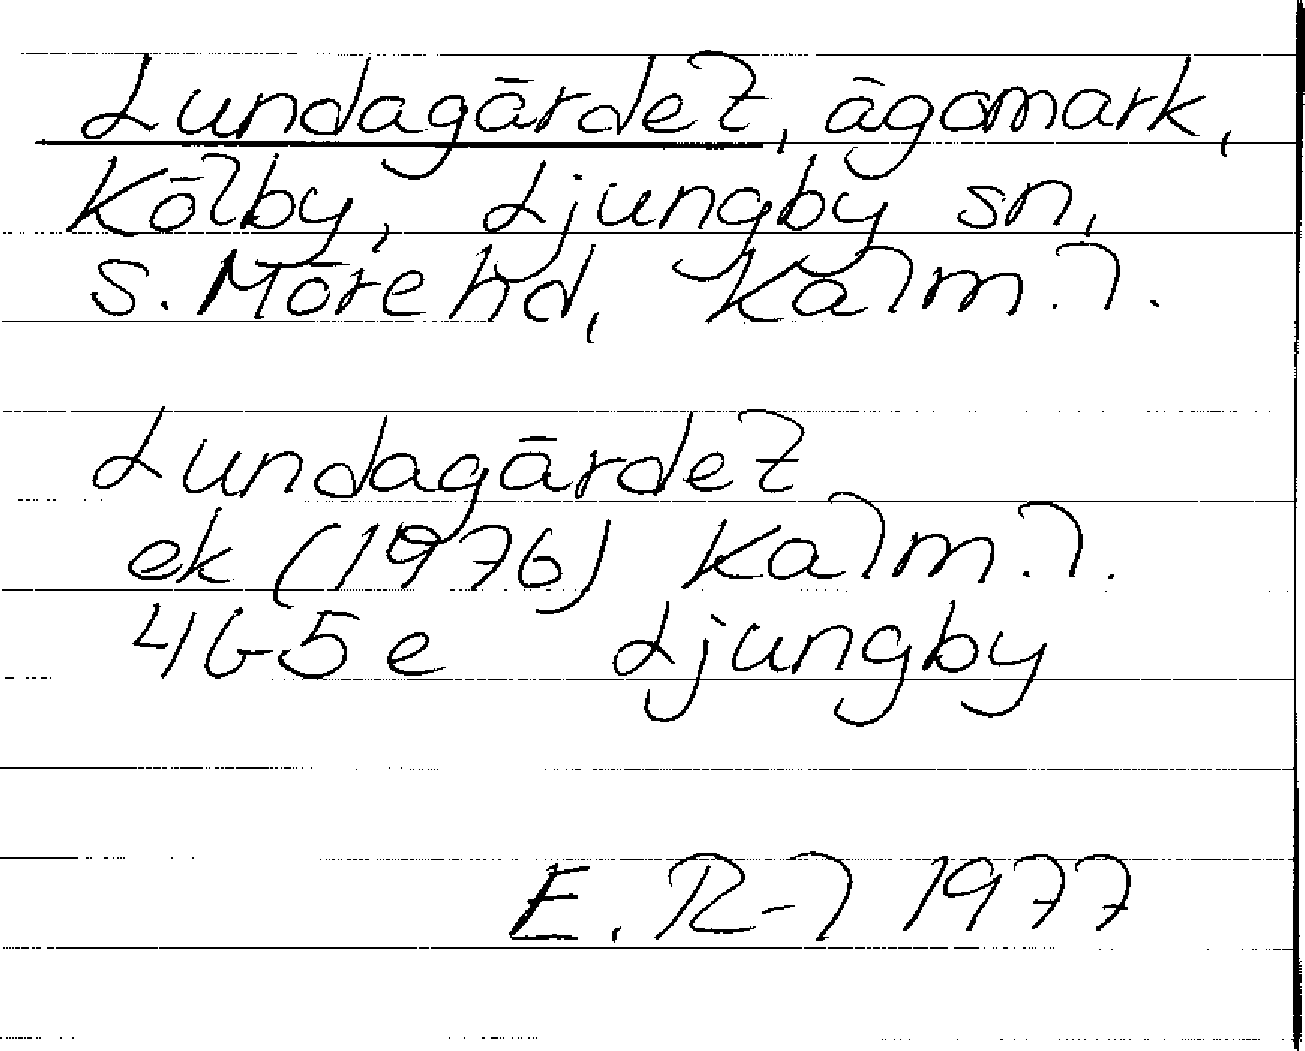 Lundagärdet, ägomark,
Kölby, Ljungby sn,
S. Möre hd, Kalm. l.
Lundagärdet
ek (1976) Kalm. l.
4G5e Ljungby
E. R-l 1977